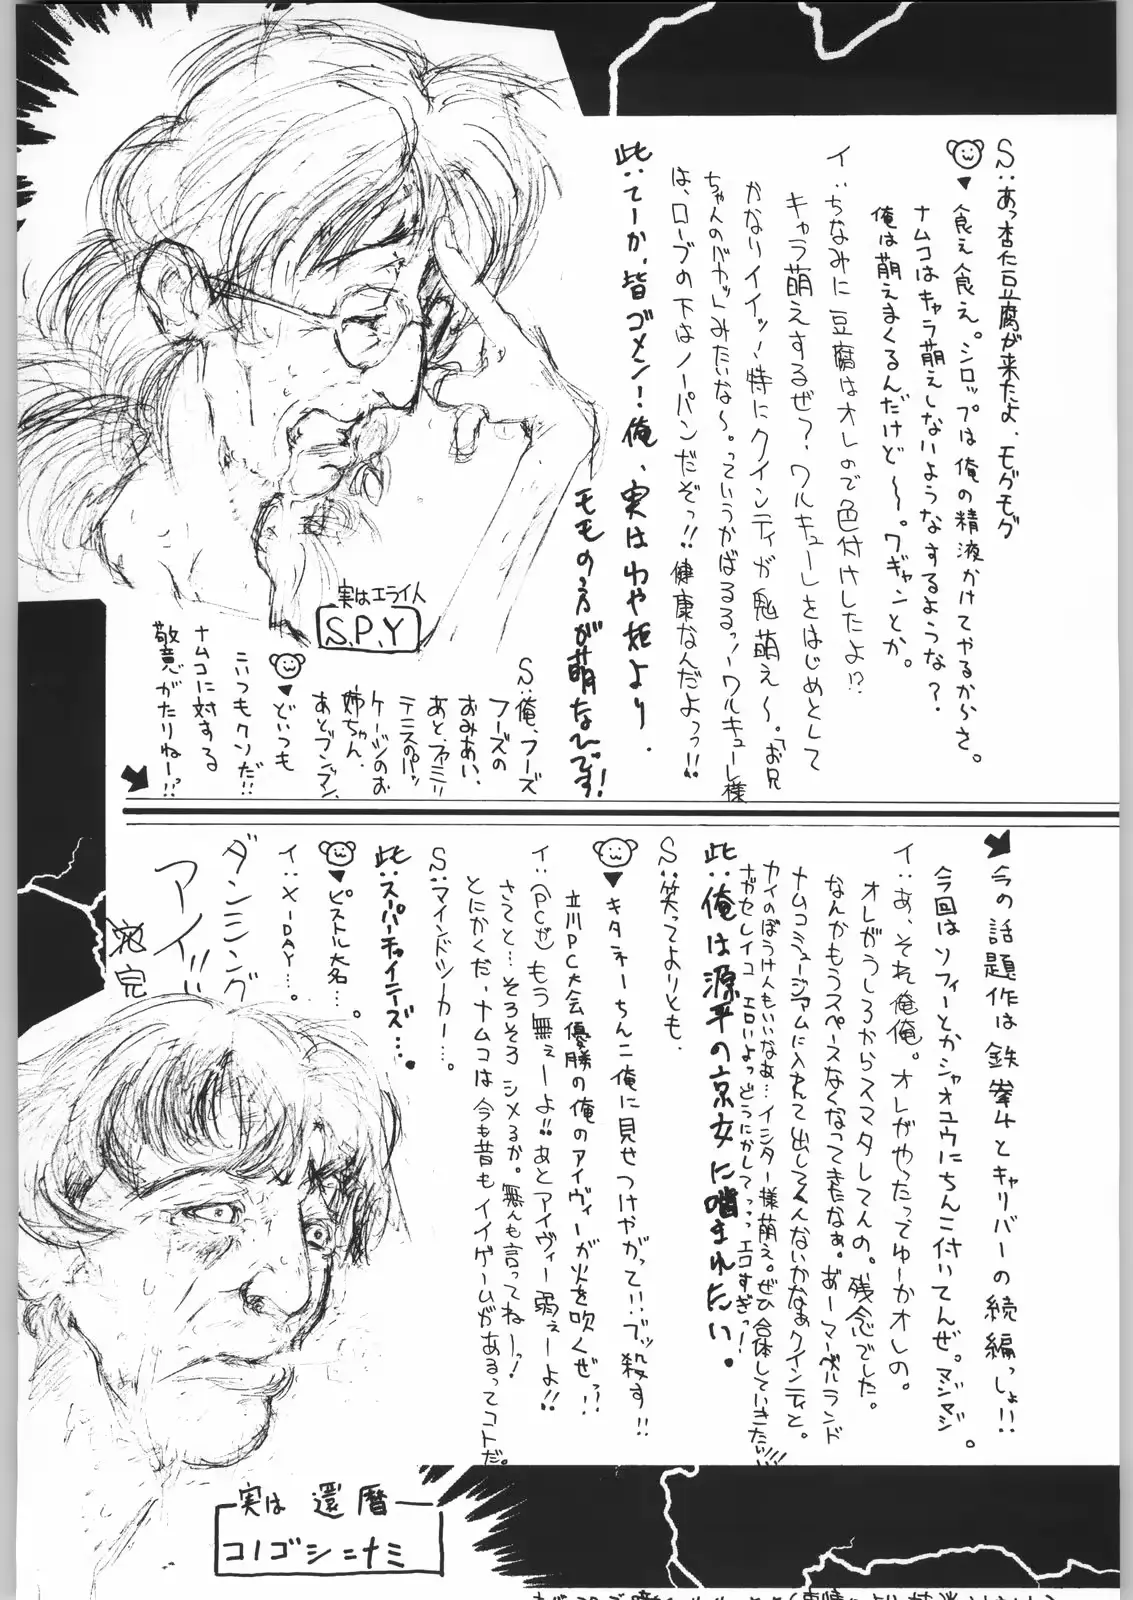 S:あっ杏仁豆腐が来たよ、モグモグ
▼食え食え。シロップは俺の精液かけてやるからさ。
ナムコはキャラ萌えしないようなするような?
俺は萌えまくるんだけど〜。ワギャンとか。
イ:ちなみに豆腐はオレので色付けしたよ!?
キャラ萌えするぜ?ワルキューレをはじめとして
かなりイイッ!特にクインティが鬼萌え〜。「お兄
ちゃんのバカッ」みたいな〜。っていうかばるるっ!ワルキューレ様
は、ローブの下はノーパンだぞっ!!健康なんだよっっ!!
此:てーか、皆ゴメン!俺、実はわや姫より、
モモの方が萌なんです!
S:俺、フーズ
フーズの
おみあい、
あと、ファミリ
テニスのパッ
ケージのお
姉ちゃん、
あとブンブン、
▼どいつも
こいつもクソだ!!
ナムコに対する
敬意がたりねーっ!!
実はエライ人
S.P.Y
今の話題作は鉄拳4とキャリバーの続編っしょ!!
今回はソフィーとかシャオユウにちんこ付いてんぜ。マジマジ。
イ:あ、それ俺俺。オレがやったってゆーかオレの。
オレがうしろからスマタしてんの。残念でした。
なんかもうスペースなくなってきたなぁ。あーマーベルランド
ナムコミュージアムに入れて出してくんないかなぁクインティと。
カイのぼうけんもいいなぁ…イシター様萌え。ぜひ合体していきたいい!!!
ガセレイユ エロいよっどうにかしてってっ エロすぎっ!
此:俺は源平の京女に噛まれたい。
S:笑ってよりとも、
▼キタネーちんこ俺に見せつけやがって!!ブッ殺す!!
立川PC大会優勝の俺のアイヴィーが火を吹くぜっ??
イ:(PCが)もう無ぇーよ!!あとアイヴィー弱ぇーよ!!
さてと…そろそろシメるか。無んも言ってねーっ!
とにかくだ、ナムコは今も昔もイイゲームがあるってコトだ。
S:マインドシーカー…。
此:スーパーチャイニーズ…。
▼ピストル大名…。
イ:X-DAY…。
ダンシング
アイ!!
完
実は 還暦
コノゴシニナミ